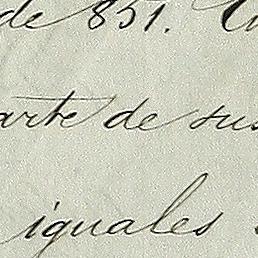 de 851.
arte de sus
iguales